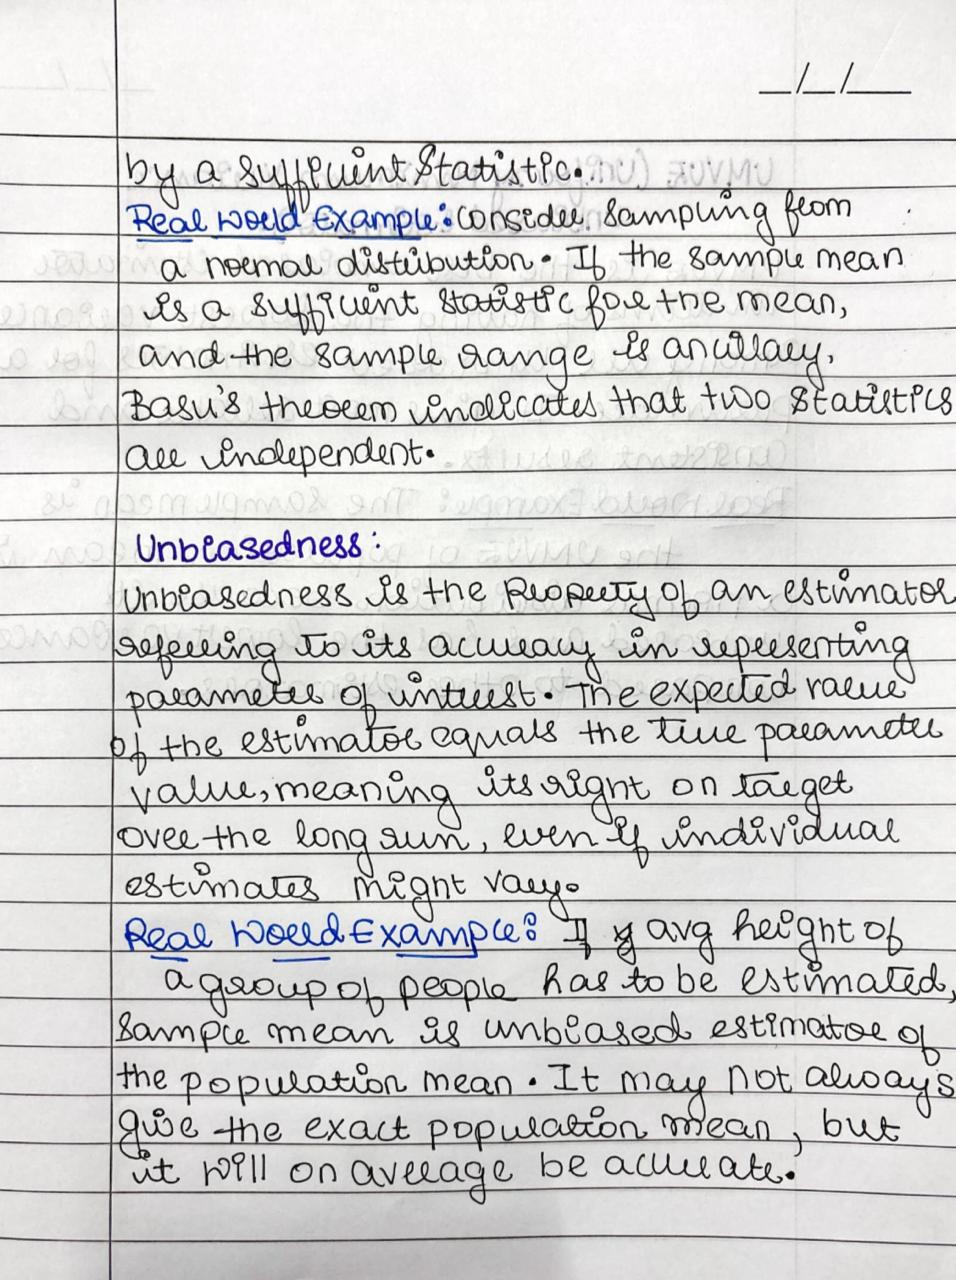 _/_/__
by a sufficient statistic.
Real World Example: Consider sampling from
a normal distribution. If the sample mean
is a sufficient statistic for the mean,
and the sample range is ancillary,
Basu's theorem indicates that two statistics
are independent.
Unbiasedness:
Unbiasedness is the property of an estimator
referring to its accuracy in representing
parameter of interest. The expected value
of the estimator equals the true parameter
value, meaning its right on target
over the long run, even if individual
estimates might vary.
Real World Example: If avg height of
a group of people has to be estimated,
sample mean is unbiased estimator of
the population mean. It may not always
give the exact population mean, but
it will on average be accurate.